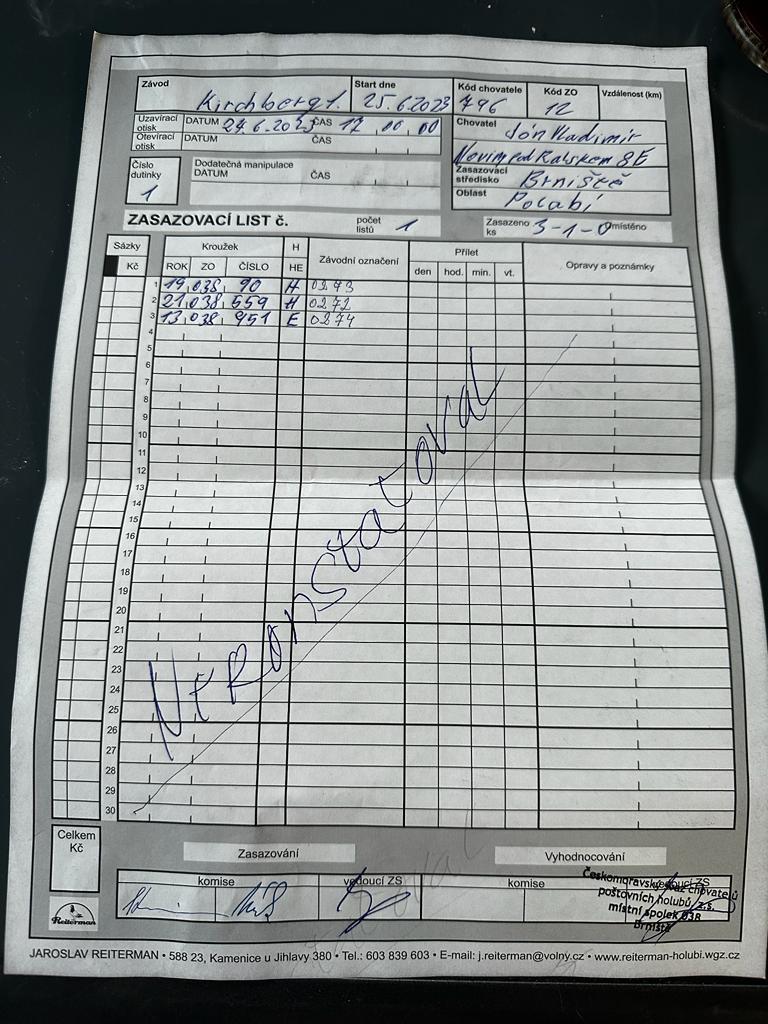 Závod Kirchberg 1. Start dne 25.6.2023 Kód chovatele 796 Kód ZO 12 Vzdálenost (km)
Uzavírací otisk DATUM 24.6.2023 ČAS 17 00 00
Otevírací otisk DATUM ČAS
Chovatel Jón Vladimír
Novimpod Ralskem 8E
Zasazovací středisko Brniště
Oblast Polabí
Číslo dutinky 1
Dodatečná manipulace
DATUM ČAS
ZASAZOVACÍ LIST č. počet listů 1 Zasazeno ks 3-1-0 Umístěno
Sázky Kroužek H Závodní označení Přílet Opravy a poznámky
Kč ROK ZO ČÍSLO HE den hod. min. vt.
1 19 038 90 H 0273
2 21 038 559 H 0272
3 13 038 951 E 0274
4
5
6
7
8
9
10
11
12
13
14
15
16
17
18
19
20
21
22
23
24
25
26
27
28
29
30
Nekonstatoval
Celkem Kč
Zasazování Vyhodnocování
komise vedoucí ZS komise vedoucí ZS
Českomoravský svaz chovatelů
poštovních holubů, z.s.
místní spolek 038
Brniště
Reiterman
JAROSLAV REITERMAN • 588 23, Kamenice u Jihlavy 380 • Tel.: 603 839 603 • E-mail: j.reiterman@volny.cz • www.reiterman-holubi.wgz.cz